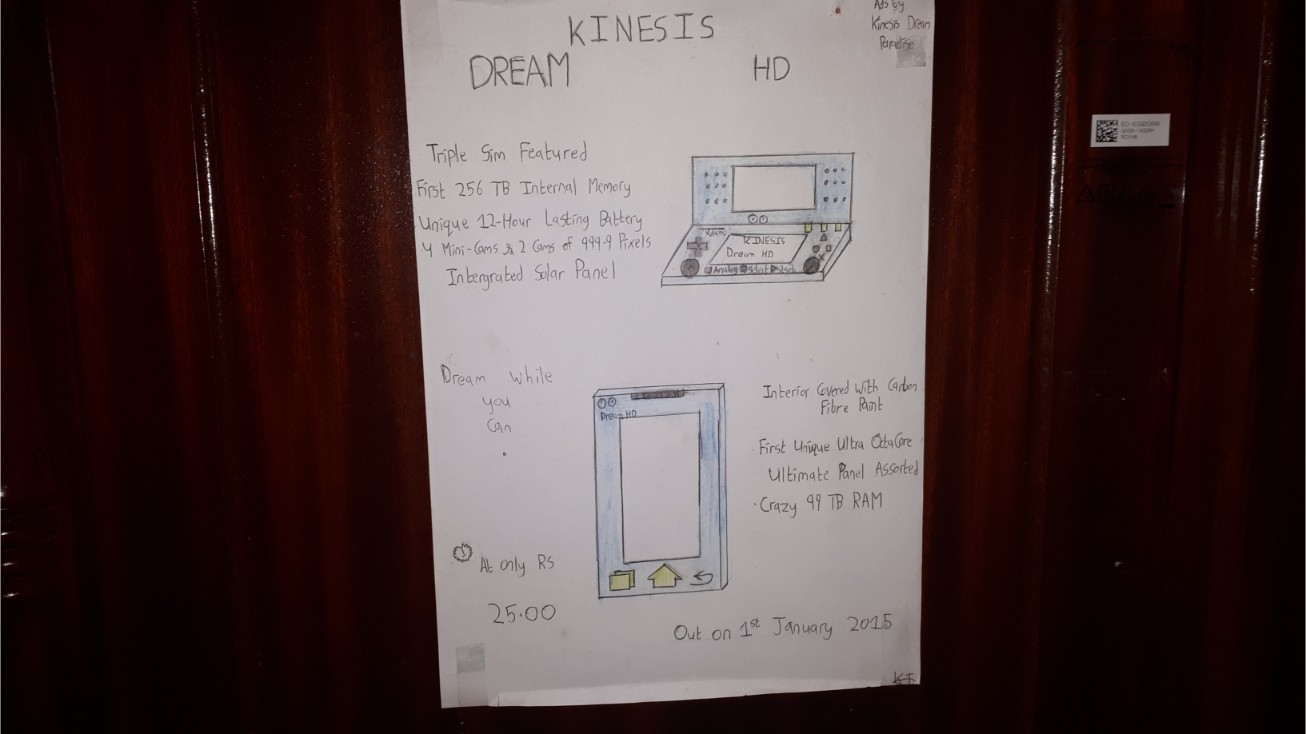 Ads by
Kinesis Dream
Paradise
KINESIS
DREAM HD
Triple Sim Featured
First 256 TB Internal Memory
Unique 12-Hour Lasting Battery
4 Mini-Cams & 2 Cams of 999.9 Pixels
Intergrated Solar Panel
Volume
KINESIS
Dream HD
Analog Select Start
Dream while
you
can
Dream HD
Interior Covered With Carbon
Fibre Paint
First Unique Ultra OctaCore
Ultimate Panel Assorted
Crazy 99 TB RAM
At only RS
25.00
Out on 1st January 2015